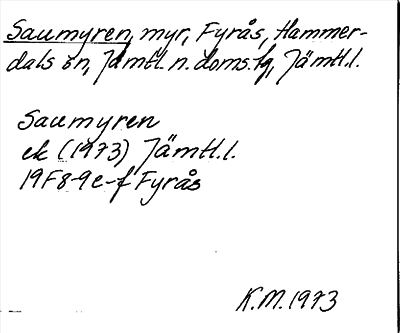 Saumyren, myr, Fyrås, Hammer-
dals sn, Jämtl. n. doms.hg, Jämtl.l.
Saumyren
ek (1973) Jämtl.l.
19F8-9e-f Fyrås
K.M. 1973